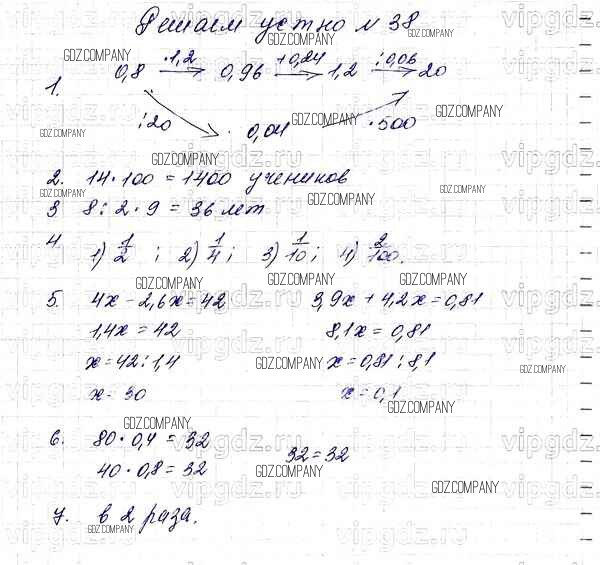 Решаем устно № 38
1. 0,8 ·1,2 → 0,96 +0,24 → 1,2 :0,06 → 20
:20 0,04 ·500
2. 14·100 = 1400 учеников
3 8:2·9 = 36 лет
4 1) 1/2 ; 2) 1/4 ; 3) 1/10 ; 4) 2/100.
5. 4x - 2,6x = 42 3,9x + 4,2x = 0,81
1,4x = 42 8,1x = 0,81
x = 42:1,4 x = 0,81:8,1
x = 30 x = 0,1
6. 80·0,4 = 32
40·0,8 = 32 32 = 32
7. в 2 раза.